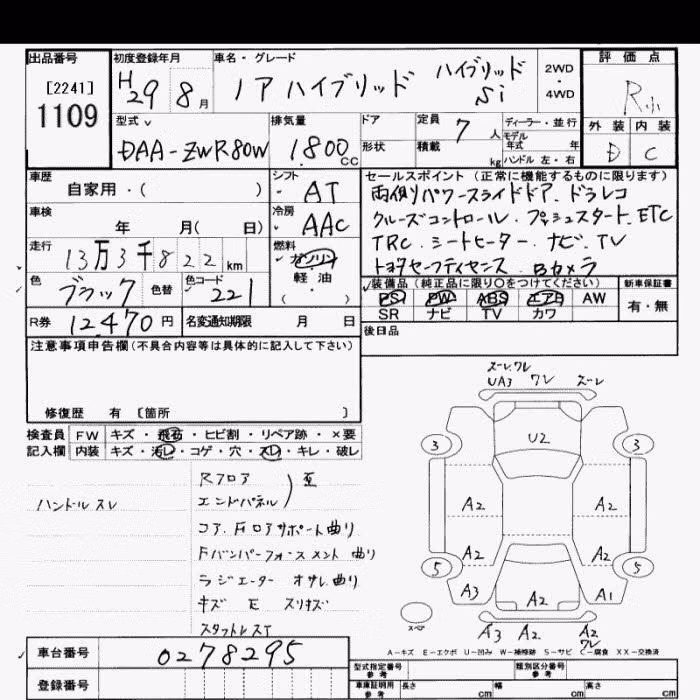 出品番号 初度登録年月 車名・グレード 評価点
[2241] H29 8月 ノア ハイブリッド ハイブリッド Si 2WD・4WD R小
1109
型式 排気量 ドア 定員 7人 ディーラー・並行 外装 内装
DAA-ZWR80W 1800cc 形状 積載 kg モデル年式 年 D C
ハンドル 左・右
車歴 シフト セールスポイント (正常に機能するものに限ります)
自家用・( ) AT 両側パワースライドドア、ドラレコ
車検 冷房 クルーズコントロール・プッシュスタート、ETC
年 月( 日) AAC TRC・シートヒーター・ナビ・TV
走行 燃料 トヨタセーフティセンス・Bカメラ
13万3千822km ガソリン 軽油 ( )
色 色替 色コード 装備品 (純正品に限り○をつけてください) 新車保証書
ブラック 221 PS PW ABS エアB AW 有・無
SR ナビ TV カワ
R券 12470円 名変通知期限 月 日 後日品
注意事項申告欄(不具合内容等は具体的に記入して下さい)
修復歴 有 [箇所 ]
検査員 FW キズ・飛石・ヒビ割・リペア跡・×要
記入欄 内装 キズ・汚レ・コゲ・穴・スレ・キレ・破レ
ハンドルスレ
Rフロア
エンドパネル
コア、Fロアサポート曲り
Fバンパーフォースメント 曲り
ラジエーター オサレ曲り
キズ E スリキズ
スタットレスT
ズーレ,ワレ
UA3 ワレ ズーレ
U2
3 3
A2 A2
A2 A2
5 5
A3 A2 A1
スペア
A3 A2 A2
ワレ
A-キズ E-エクボ U-凹み W-補修跡 S-サビ C-腐食 XX-交換済
車台番号 0278295
登録番号
型式指定番号 参考 類別区分番号 参考
車庫証明用 参考 長さ cm 幅 cm 高さ cm